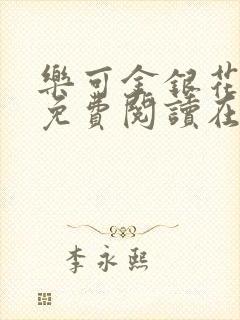 樂可金銀花
免費閱讀在
李永熙